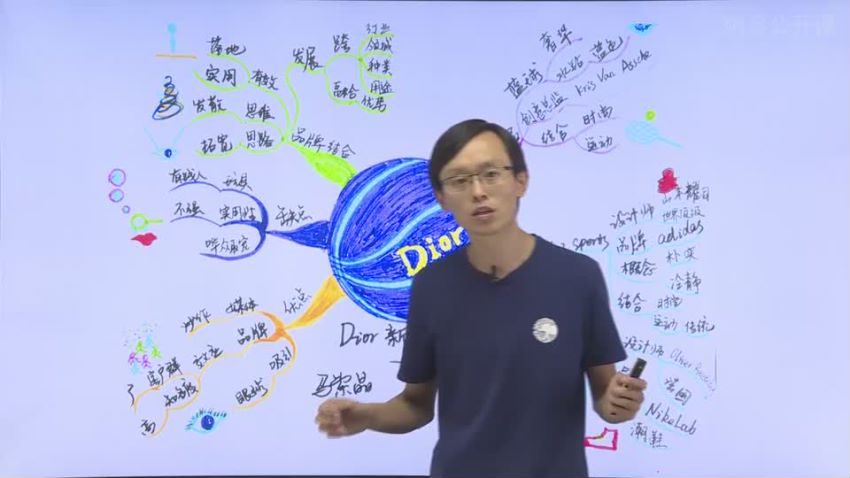 网易公开课
落地
实用
有效
发散
思维
拓宽
思路
品牌结合
发展
跨
行业
领域
种类
融合
用途
优势
奢华
篮球
水钻
蓝色
创意总监
Kris Van Assche
结合
时尚
运动
有钱人
玩具
不强
实用性
哗众取宠
缺点
Dior
优点
炒作
媒体
品牌
效应
客户群
知名度
广
高
吸引
眼球
Dior 新
sports
设计师
山本耀司
世界顶级
品牌
adidas
概念
朴实
冷静
结合
时尚
运动
传统
设计师
法国
NikeLab
潮鞋